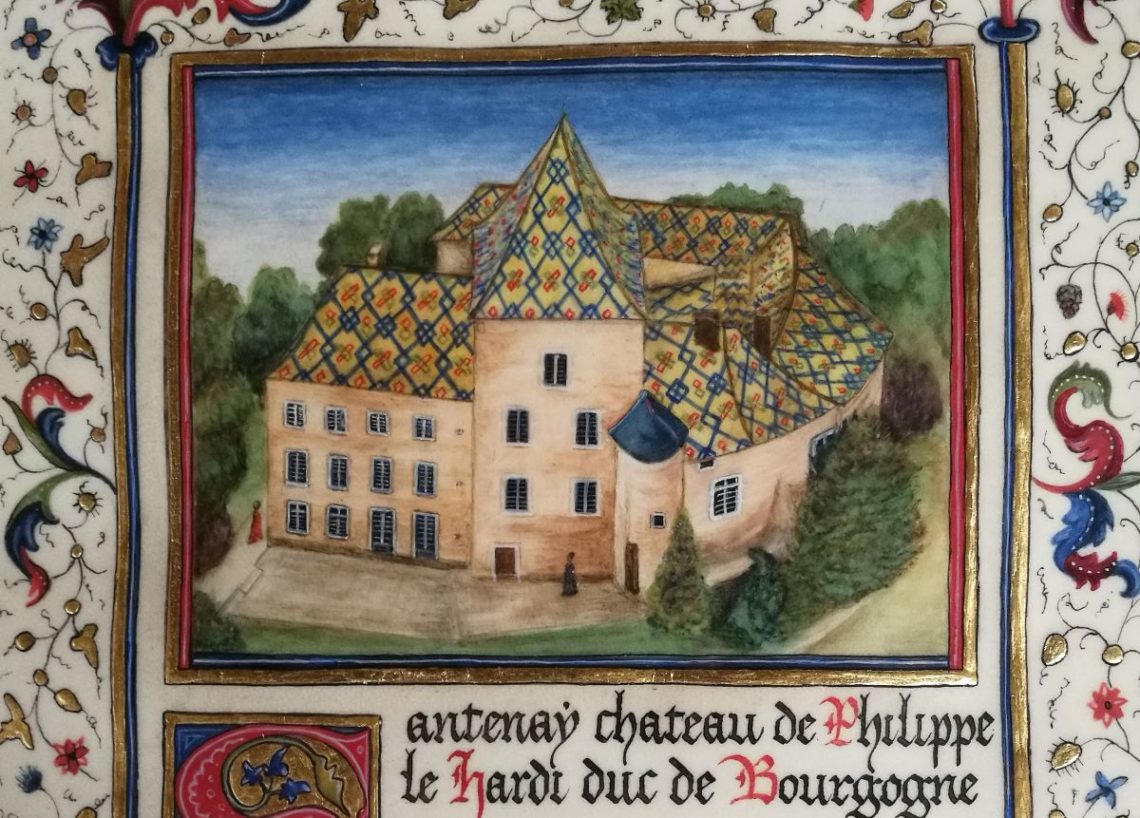 Santenaÿ chateau de Philippe
le Hardi duc de Bourgogne